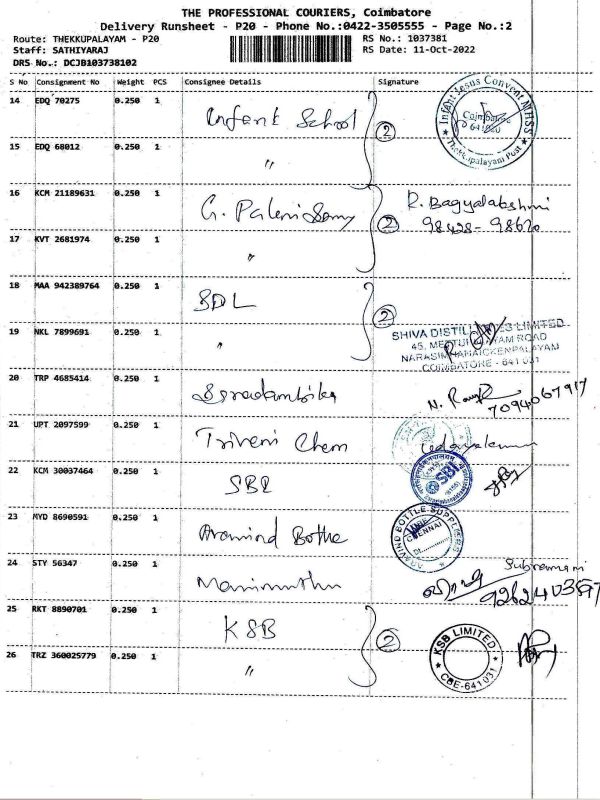 THE PROFESSIONAL COURIERS, Coimbatore
Delivery Runsheet - P20 - Phone No.:0422-3505555 - Page No.:2
Route: THEKKUPALAYAM - P20
Staff: SATHIYARAJ
DRS No.: DCJB103738102
RS No.: 1037381
RS Date: 11-Oct-2022
S No Consignment No Weight PCS Consignee Details Signature
14 EDQ 70275 0.250 1 Infent School ②
Infant Jesus Convent MHSS
Coimbatore
641020
Thekkupalayam Post
15 EDQ 68012 0.250 1 "
16 KCM 21189631 0.250 1 G. Palenisamy ② R. Bagyalakshmi
98428-98620
17 KVT 2681974 0.250 1 "
18 MAA 942389764 0.250 1 SDL ②
19 NKL 7899691 0.250 1 "
SHIVA DISTILLERIES LIMITED
45, METTUPALAYAM ROAD
NARASIMHANAICKENPALAYAM
COIMBATORE - 641 031
20 TRP 4685414 0.250 1
7094067917
21 UPT 2097599 0.250 1 Triveni Chem Udayakumar
22 KCM 30037464 0.250 1 SBI
SBI
23 MYD 8690591 0.250 1 Aravind Bothe
ARVIND BOTTLE SUPPLIERS
CHENNAI
24 STY 56347 0.250 1 Manimuthu
Subramani
25 RKT 8890701 0.250 1 KSB ②
KSB LIMITED
CBE-641031
26 TRZ 360025779 0.250 1 "